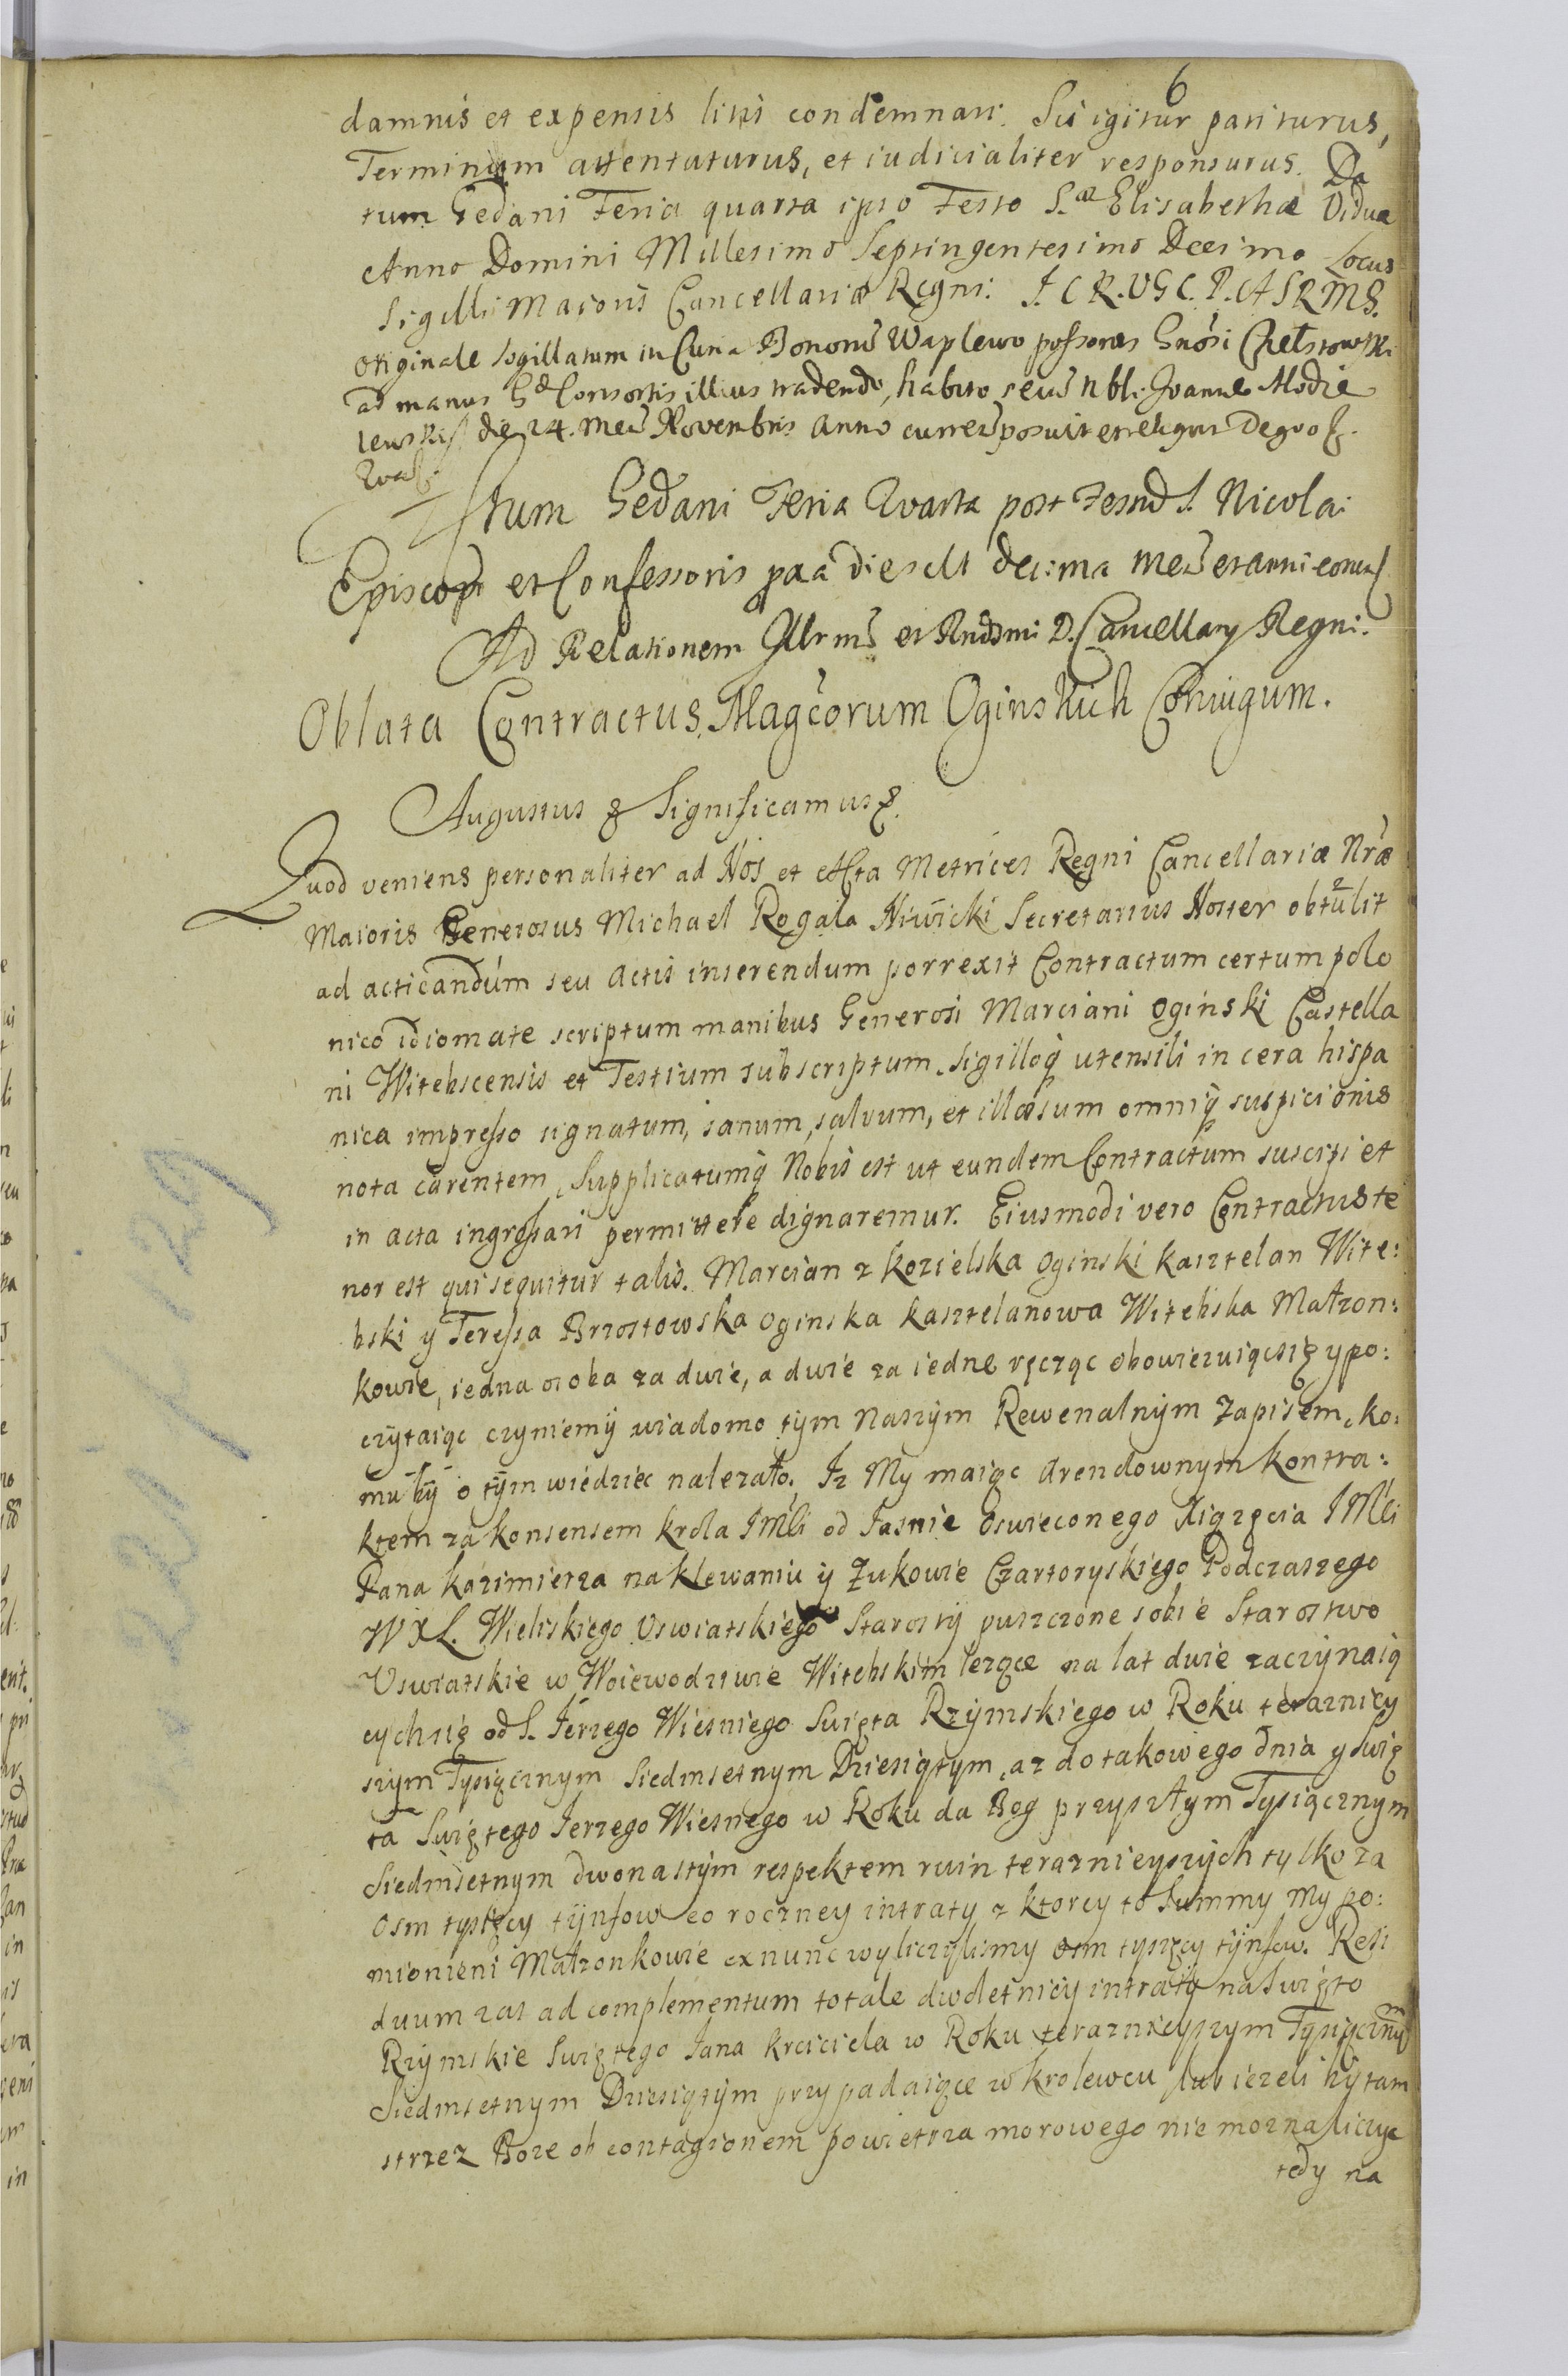 6
damnis et expensis litis condemnari. Sis igitur pariturus,
Terminum attentaturus, et iudicialiter responsurus. Da
tum Gedani Feria quarta ipso Festo S.æ Elisabethæ Viduæ
Anno Domini Millesimo Septingentesimo Decimo Locus
Sigilli Maioris Cancellariæ Regni. J. C R. V G C. P. A S R M S.
Originale sigillatum in Curia Bonorum Waplewo
ad manus Consortis illius tradendo, habito secum Nbli Joanne Modze
lewski die 24. Mens Novembris anno curren posuit et reliquit De quo
Actum Gedani Feria Quarta post Festum S. Nicolai
Episcopi et Confessoris die decima Mens et anni eorund
Ad Relationem Illrmi et Rndsmi D. Cancellarij Regni.
Oblata Contractus Magcorum Oginskich Coniugum.
Augustus & Significamus &.
Quod veniens personaliter ad Nos et Acta Metrices Regni Cancellariæ Nræ
Maioris Generosus Michael Rogala Niwicki Secretarius Noster obtulit
ad acticandum seu actis inserendum porrexit Contractum certum polo
nico idiomate scriptum manibus Generosi Marciani Oginski Castella
ni Witebscensis et Testium subscriptum, Sigilloq utensili in cera hispa
nica impresso signatum, sanum, salvum, et illæsum omniq suspicionis
nota carentem, Supplicatumq Nobis est ut eundem Contractum suscipi et
in acta ingrossari permittere dignaremur. Eiusmodi vero Contractus te
nor est qui sequitur talis. Marcian z Kozielska Oginski kasztelan Wite:
bski y Teressa Brzostowska Oginska kasztelanowa Witebska Małzon:
kowie, iedna osoba za dwie, a dwie za iednę ręcząc obowiezuiąc się y po:
czytaiąc czyniemy wiadomo tym Naszym Rewenalnym Zapisem, ko:
mu by o tym wiedziec nalezało. Iz My maiąc Arendownym kontra:
ktem za konsensem krola IMci od Iasnie Oswieconego Xiązęcia IMci
Pana Kazimierza na Klewaniu y Zukowie Czartoryskiego Podczaszego
W X L. Wieliskiego Uswiatskiego Starosty puszczone sobie Starostwo
Uswiatskie w Woiewodztwie Witebskim lezące na lat dwie zaczynaią
cych się od S. Ierzego Wiesniego Swięta Rzymskiego w Roku terazniey
szym Tysiącznym Siedmsetnym Dziesiątym, az do takowego dnia y Swię
ta Swiętego Ierzego Wiesnego w Roku da Bog przyszłym Tysiącznym
Siedmsetnym dwonastym respektem ruin teraznieyszych tylko za
Osm tysięcy tynfow co roczney intraty z ktorey to Summy My po:
mionieni Małzonkowie ex nunc wyliczylismy osm tysięcy tynfow. Resi
duum zas ad complementum totale dwuletniey intraty na Swięto
Rzymskie Swiętego Iana krciciela w Roku teraznieyszym Tysiącznym
Siedmsetnym Dziesiątym przypadaiące w krolewcu lub iezeli by tam
strzez Boze ob contagionem powietrza morowego nie mozna liczyc
tedy na